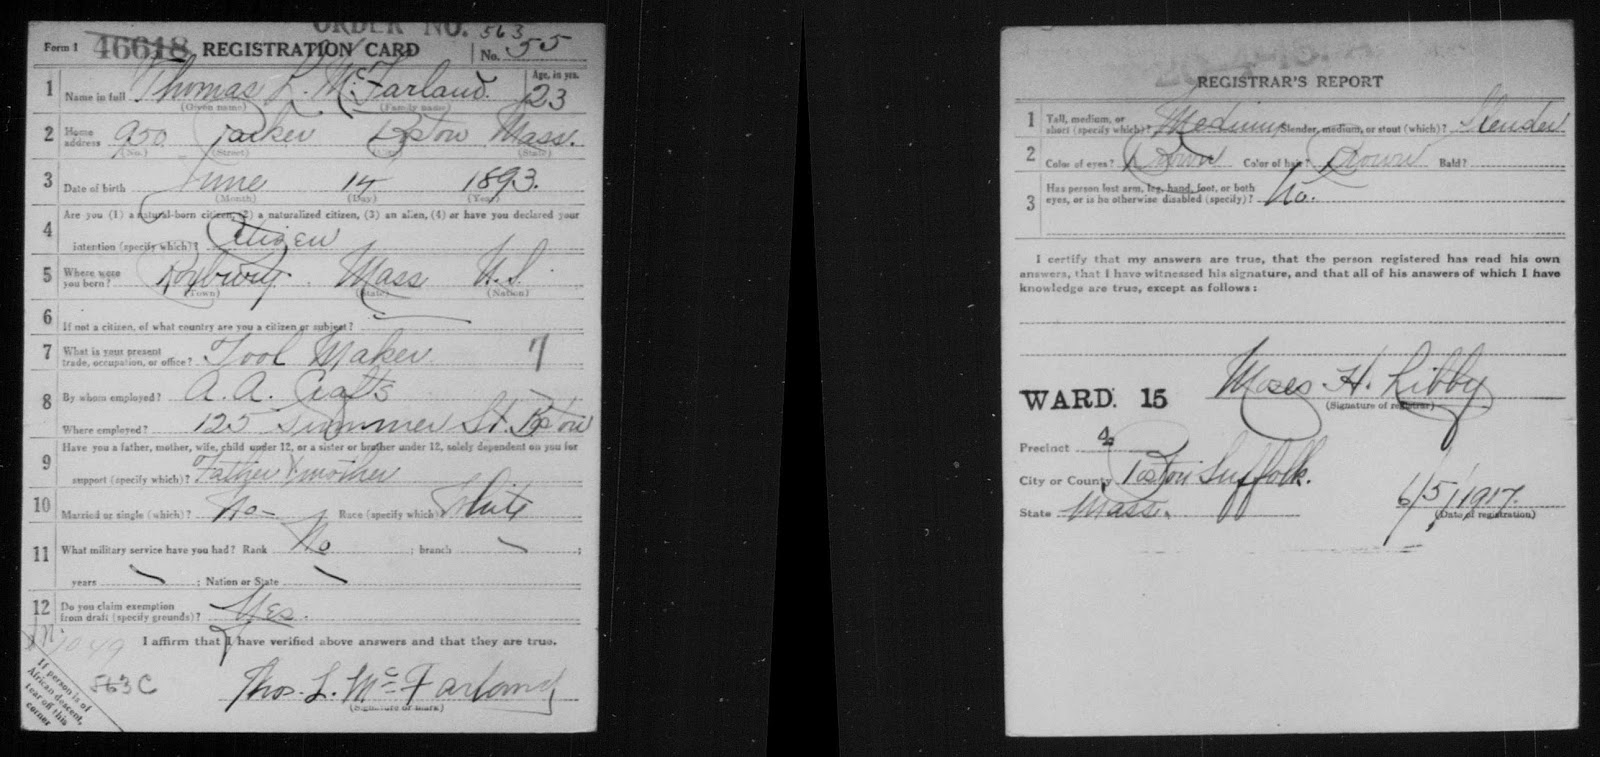 ORDER NO. 563
Form 1 46618 REGISTRATION CARD No. 55
1 Name in full Thomas L. McFarland. Age, in yrs. 23
(Given name) (Family name)
2 Home address 950 Parker Boston Mass.
(No.) (Street) (City) (State)
3 Date of birth June 14 1893.
(Month) (Day) (Year)
4 Are you (1) a natural-born citizen, (2) a naturalized citizen, (3) an alien, (4) or have you declared your
intention (specify which)? Citizen
5 Where were you born? Roxbury. Mass U.S.
(Town) (State) (Nation)
6 If not a citizen, of what country are you a citizen or subject?
7 What is your present trade, occupation, or office? Tool Maker. 7
8 By whom employed? A. A. Crafts
Where employed? 125 Summer St. Boston
9 Have you a father, mother, wife, child under 12, or a sister or brother under 12, solely dependent on you for
support (specify which)? Father & mother
10 Married or single (which)? No Race (specify which) White
11 What military service have you had? Rank No ; branch ;
years ; Nation or State
12 Do you claim exemption from draft (specify grounds)? Yes.
I affirm that I have verified above answers and that they are true.
563 C
Thos. L. McFarland
(Signature or mark)
If person is of
African descent,
tear off this
corner
REGISTRAR'S REPORT
1 Tall, medium, or short (specify which)? Medium Slender, medium, or stout (which)? Slender
2 Color of eyes? Brown Color of hair? Brown Bald?
3 Has person lost arm, leg, hand, foot, or both
eyes, or is he otherwise disabled (specify)? No.
I certify that my answers are true, that the person registered has read his own
answers, that I have witnessed his signature, and that all of his answers of which I have
knowledge are true, except as follows:
Moses H. Libby
(Signature of registrar)
WARD. 15
Precinct 4
City or County Boston Suffolk.
State Mass. 6/5/1917.
(Date of registration)